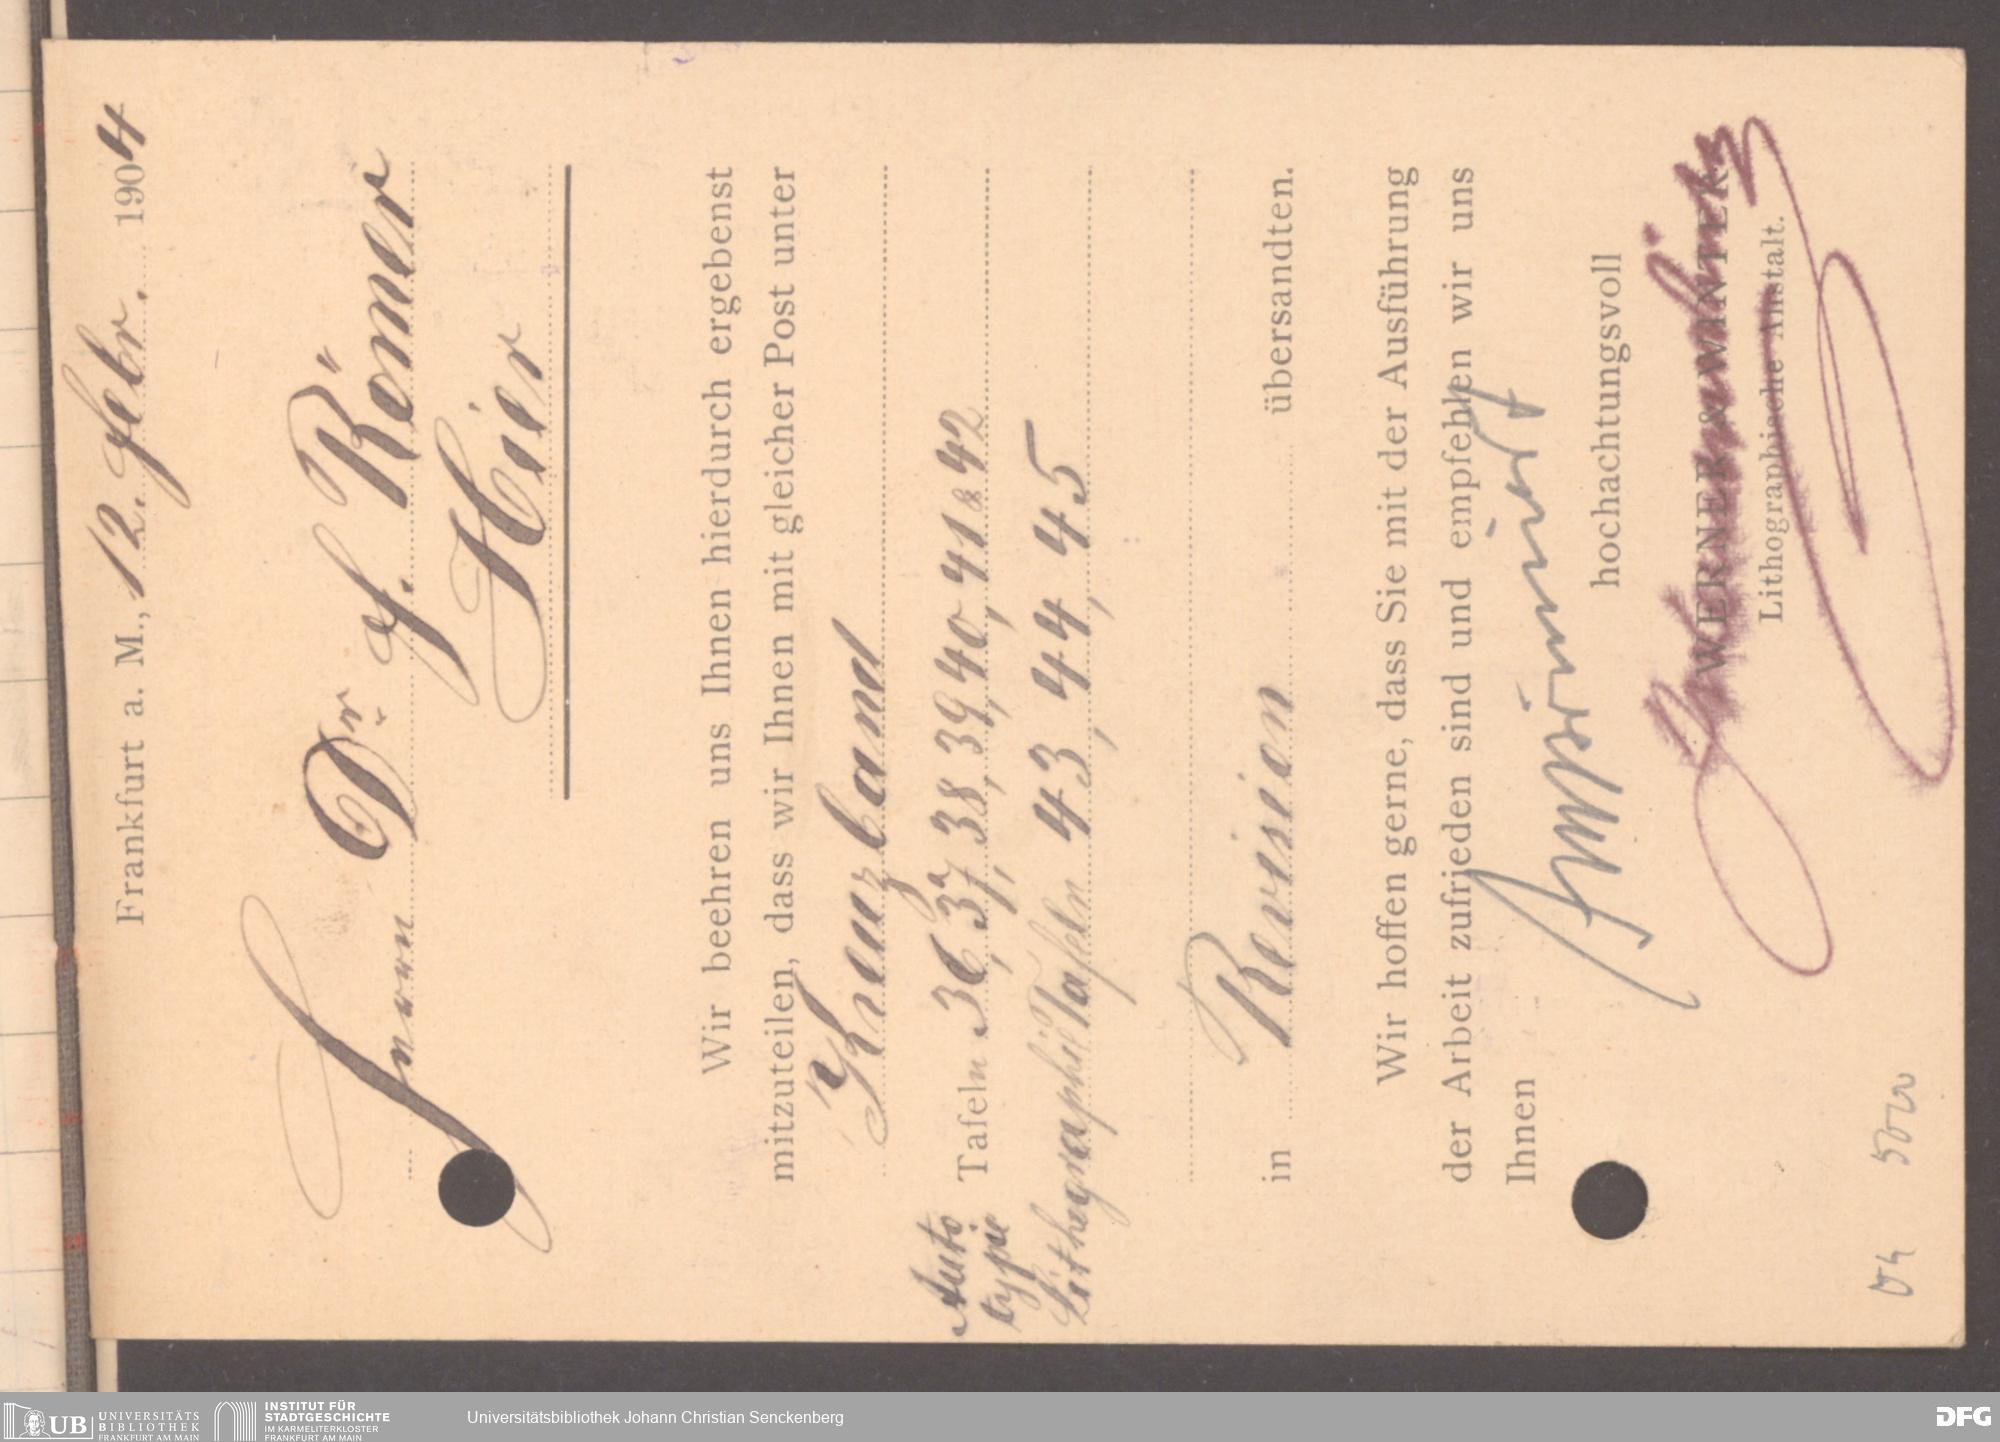 Frankfurt a. M., 12. Febr. 1904
Herrn Dr. F. Römer
Hier
Wir beehren uns Ihnen hierdurch ergebenst
mitzuteilen, dass wir Ihnen mit gleicher Post unter
Kreuzband
Autotypie Tafeln 36, 37a, 38, 39, 40, 41 & 42
Lithographie Tafeln 43, 44, 45
in Revision übersandten.
Wir hoffen gerne, dass Sie mit der Ausführung
der Arbeit zufrieden sind und empfehlen wir uns
Ihnen
hochachtungsvoll
WERNER & WINTER
Lithographische Anstalt.
5000
UB UNIVERSITÄTS
BIBLIOTHEK
FRANKFURT AM MAIN
INSTITUT FÜR
STADTGESCHICHTE
IM KARMELITERKLOSTER
FRANKFURT AM MAIN
Universitätsbibliothek Johann Christian Senckenberg
DFG